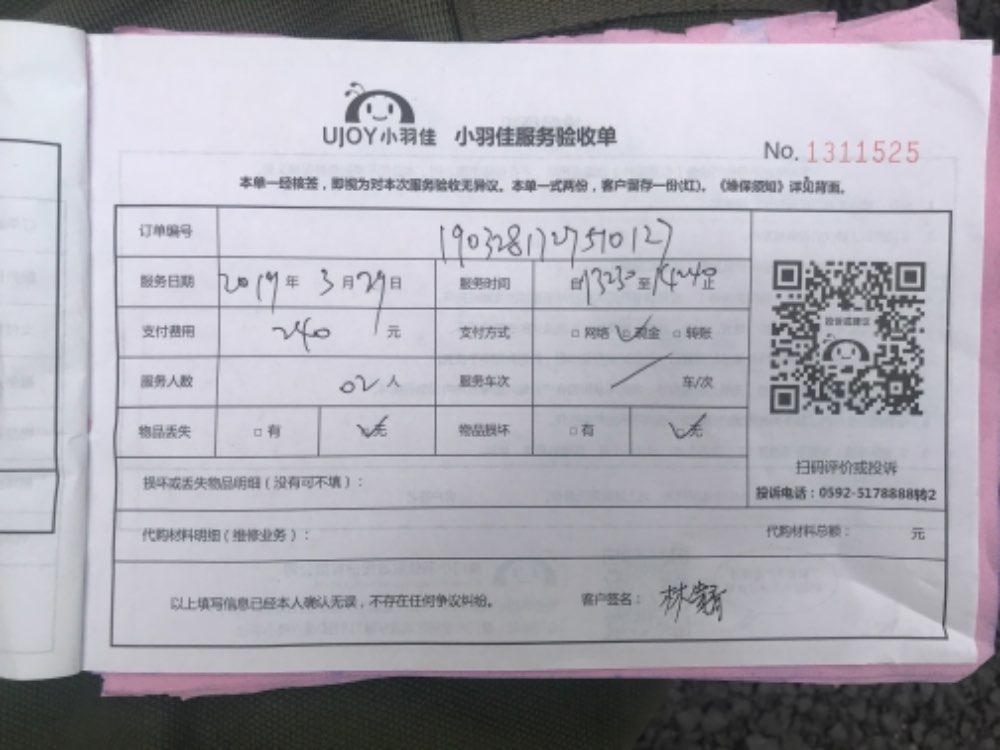 UJOY小羽佳 小羽佳服务验收单
No. 1311525
本单一经核签，即视为对本次服务验收无异议。本单一式两份，客户留存一份(红)。《维保须知》详见背面。
订单编号 190328172750127
服务日期 2019年 3月29日 服务时间 自13230至14240止
支付费用 240 元 支付方式 □网络 ☑现金 □转账
投诉或建议
服务人数 02人 服务车次 / 车/次
物品丢失 □有 ☑无 物品损坏 □有 ☑无
扫码评价或投诉
损坏或丢失物品明细（没有可不填）：
投诉电话：0592-5178888转2
代购材料明细（维修业务）： 代购材料总额： 元
以上填写信息已经本人确认无误，不存在任何争议纠纷。 客户签名： 林